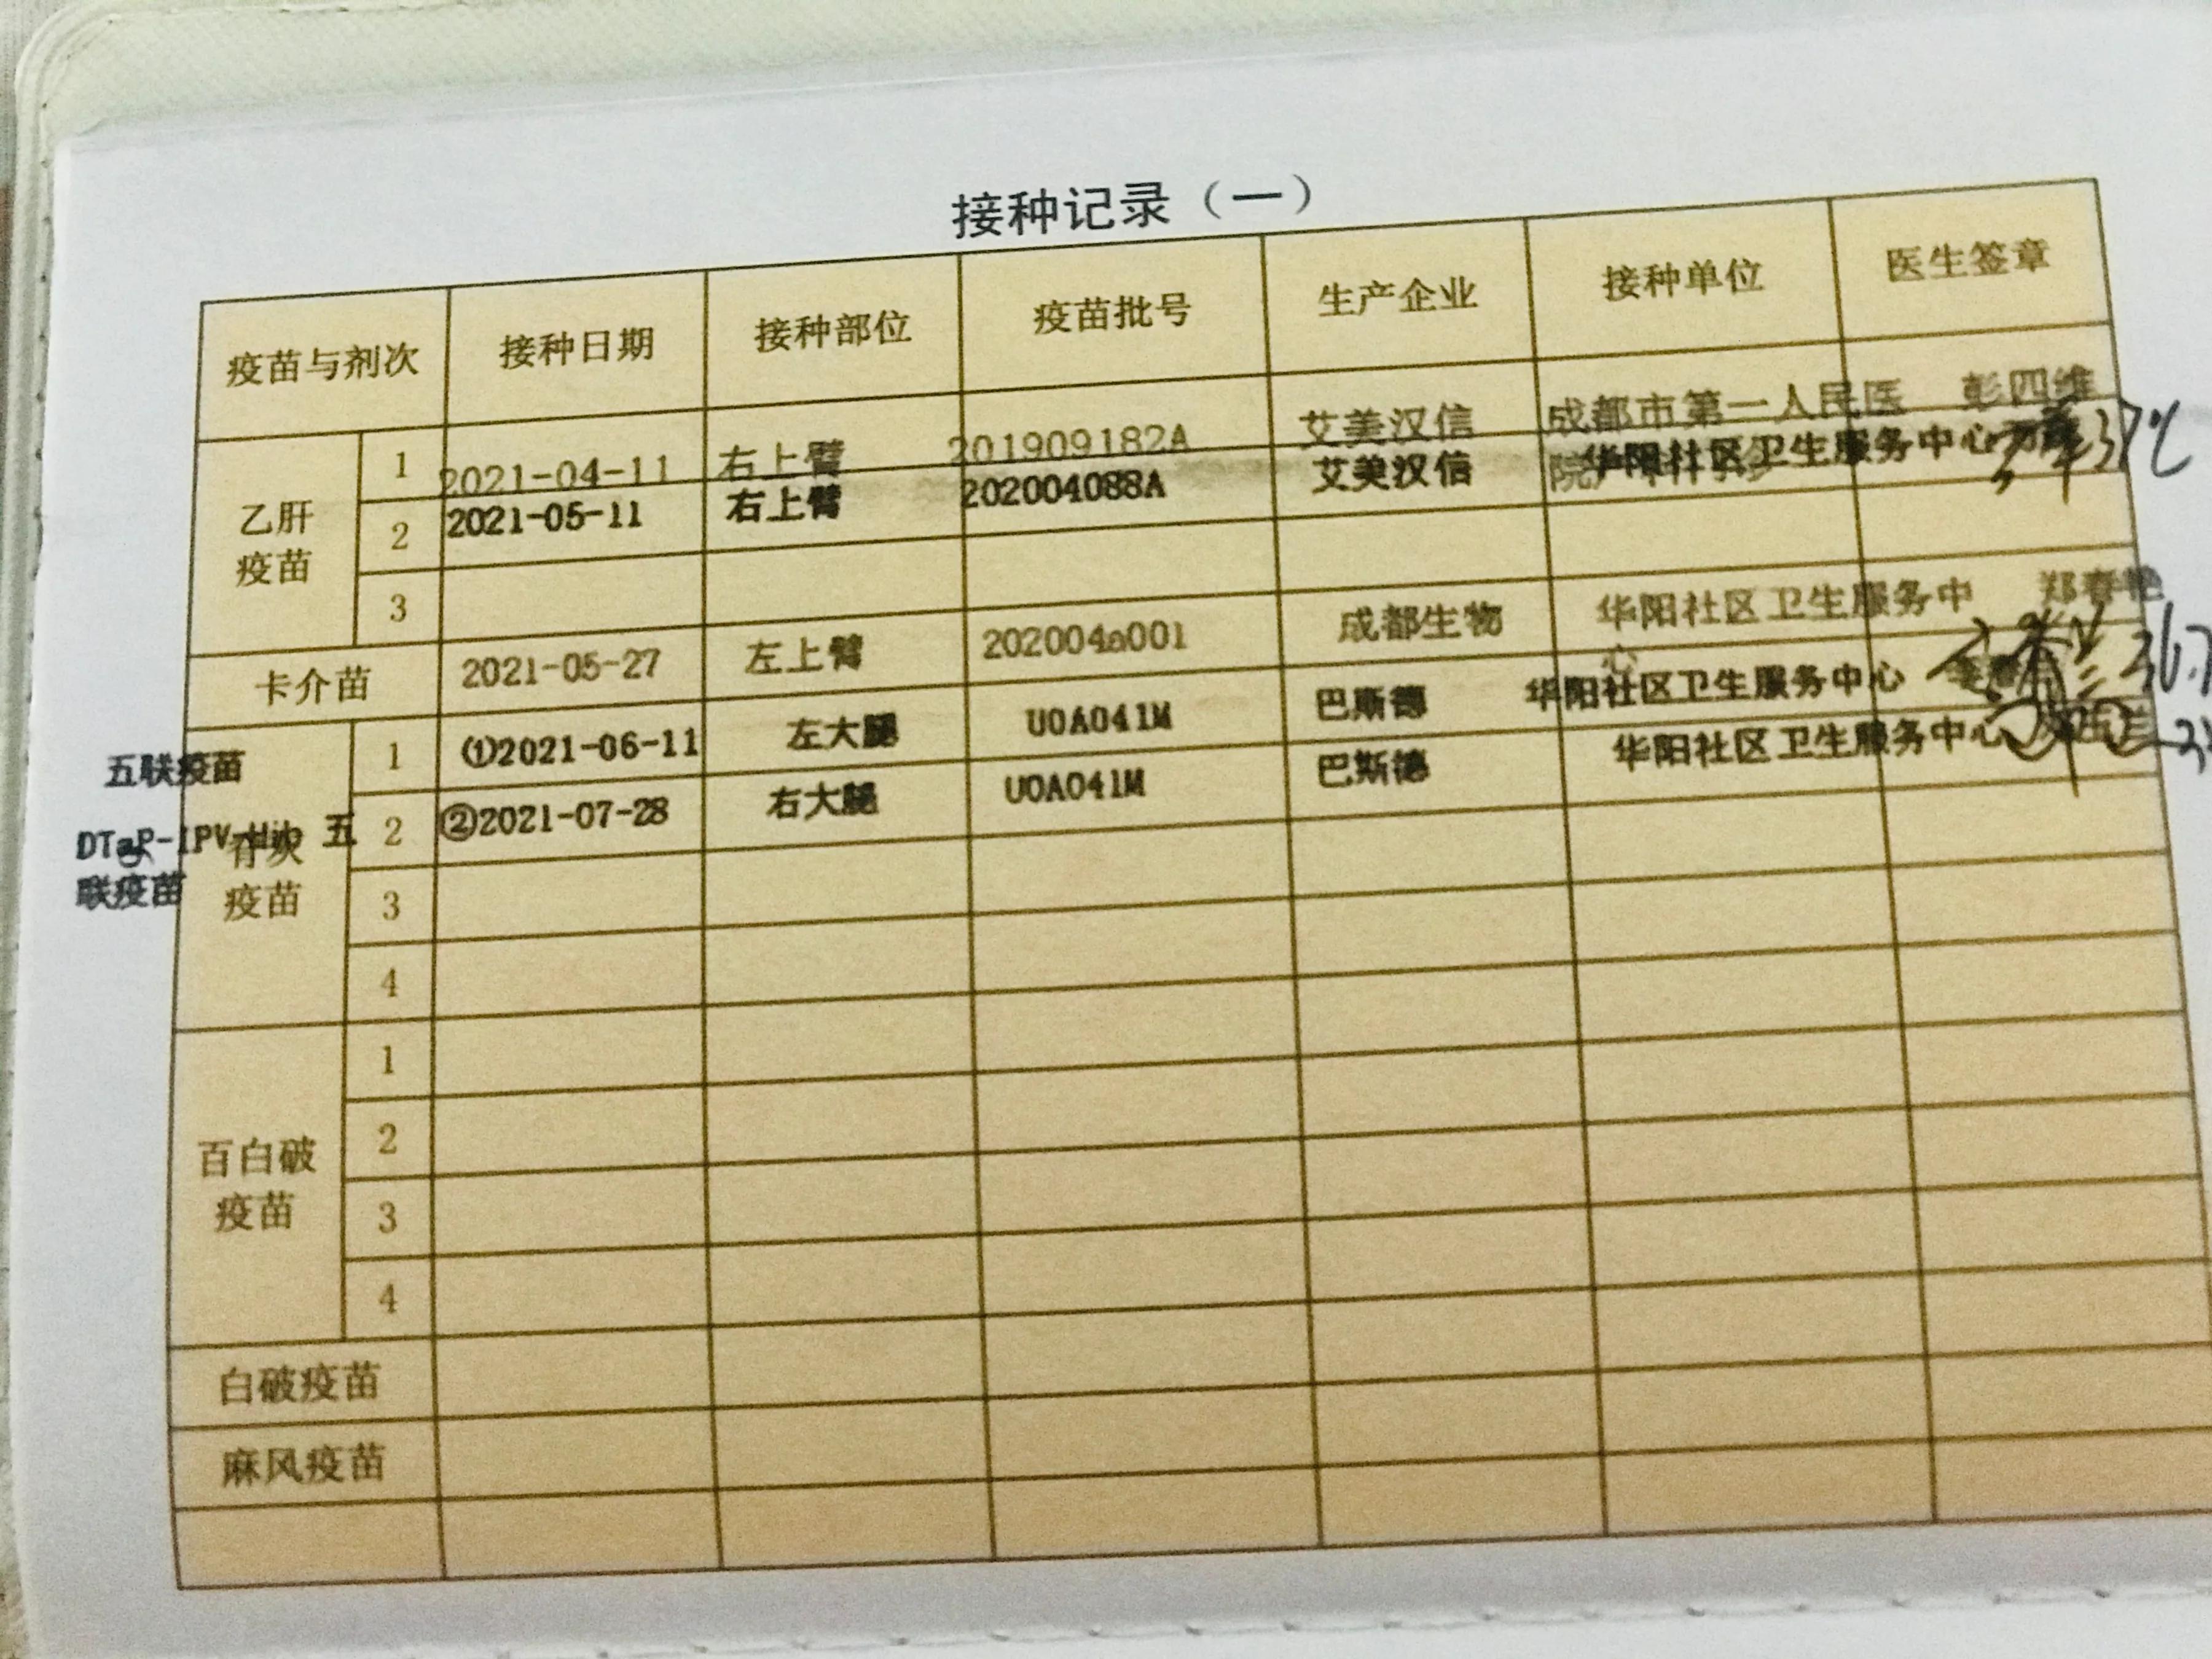 接种记录（一）
疫苗与剂次 接种日期 接种部位 疫苗批号 生产企业 接种单位 医生签章
乙肝疫苗
1 2021-04-11 右上臂 201909182A 艾美汉信 成都市第一人民医院 彭四维
2 2021-05-11 右上臂 202004088A 艾美汉信 华阳社区卫生服务中心 37℃
3
卡介苗 2021-05-27 左上臂 202004a001 成都生物 华阳社区卫生服务中心 郑春艳
五联疫苗 1 ①2021-06-11 左大腿 U0A041M 巴斯德 华阳社区卫生服务中心 36.7
DTaP-IPV-Hib 五联疫苗 2 ②2021-07-28 右大腿 U0A041M 巴斯德 华阳社区卫生服务中心
疫苗
3
4
百白破疫苗
1
2
3
4
白破疫苗
麻风疫苗